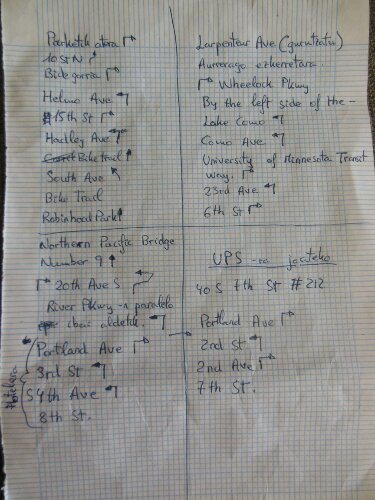 Parketik atera ↱
10 St N ↱
Bide gorria ↱
Helmo Ave ↰
15th St ↱
Hadley Ave ↰
Bike trail ↑
South Ave ↖
Bike Trail
Robinhood Park ↑
Northern Pacific Bridge
Number 9 ↑
↱ 20th Ave S
River Pkwy-n paralelo
ibai aldetik. ↰
Portland Ave ↱
3rd St ↰
S 4th Ave ↰
8th St.
Hotelera
Larpenteur Ave (gurutzatu)
Aurrerago ezkerretara.
↱ Wheelock Pkwy
By the left side of the -
Lake Como ↰
Como Ave. ↰
University of Minnesota Transit
way. ↱
23rd Ave ↰
6th St ↱
UPS -ra joateko
40 S 7th St #212
Portland Ave ↱
2nd St ↰
2nd Ave ↱
7th St.